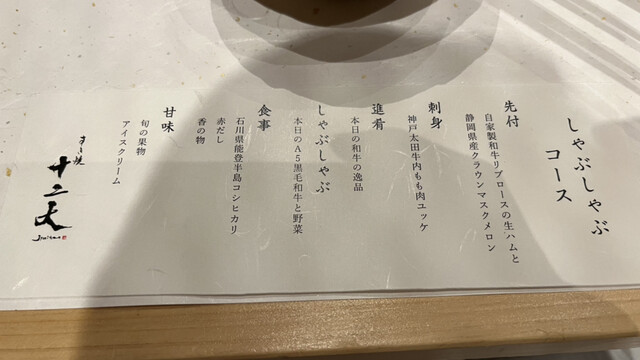 しゃぶしゃぶ
コース
先付
自家製和牛リブロースの生ハムと
静岡県産クラウンマスクメロン
刺身
神戸太田牛内もも肉ユッケ
進肴
本日の和牛の逸品
しゃぶしゃぶ
本日のA5黒毛和牛と野菜
食事
石川県能登半島コシヒカリ
赤だし
香の物
甘味
旬の果物
アイスクリーム
すき焼
十二天